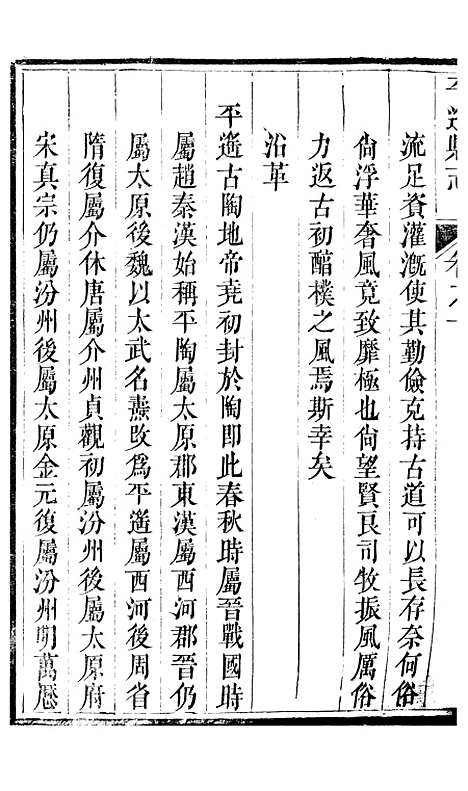 平遙縣志 卷之一
流足資灌漑使其勤儉克持古道可以長存奈何俗
尙浮華奢風竟致靡極也尙望賢良司牧振風厲俗
力返古初醕樸之風焉斯幸矣
沿革
平遙古陶地帝堯初封於陶卽此春秋時屬晉戰國時
屬趙秦漢始稱平陶屬太原郡東漢屬西河郡晉仍
屬太原後魏以太武名燾改爲平遙屬西河後周省
隋復屬介休唐屬介州貞觀初屬汾州後屬太原府
宋真宗仍屬汾州後屬太原金元復屬汾州明萬厯